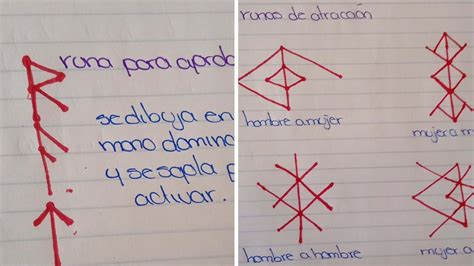 runa para
se dibuja en
mano domina
y se sopla p
activar.
runas de atracción
hombre a mujer
mujer a m
hombre a hombre
mujer a